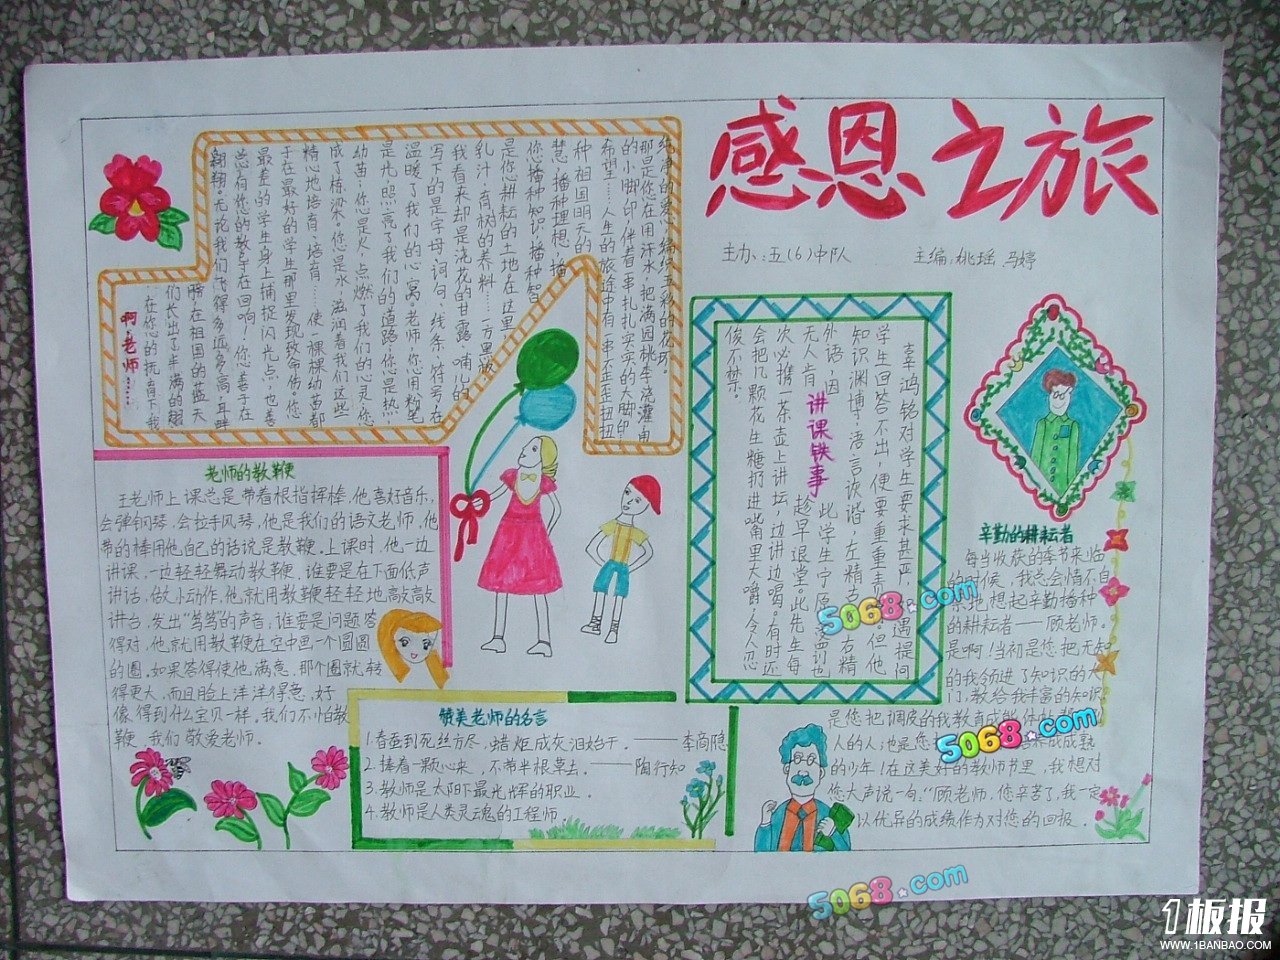 感恩之旅
主办：五（6）中队
主编：桃瑶 马婷
啊，老师……
在您的抚育下，我
们长出了丰满的翅
膀，在祖国的蓝天
翱翔，无论我们飞得多远多高，耳畔
总有您的教导在回响，您善于在
最差的学生身上捕捉闪光点，也善
于在最好的学生那里发现致命伤。您
精心地培育、培育……使一棵棵幼苗都
成了栋梁。您是水，滋润着我们这些
幼苗；您是火，点燃了我们的心灵；您
是光，照亮了我们的道路；您是热，
温暖了我们的心窝。老师，您用粉笔
写下的是字母、词句、线条、符号，在
我看来却是浇花的甘露、哺儿的
乳汁、育树的养料……方里觉
是您耕耘的土地，在这里
您播种知识，播种智
慧，播种理想，播
种祖国明天的
希望……人生的旅途中有一串歪歪扭扭
的小脚印，伴着一串扎扎实实的大脚印，
那是您在用汗水，把满园桃李浇灌，用
纯净的爱，编织五彩的花环。
老师的教鞭
王老师上课总是带着根指挥棒，他喜好音乐，
会弹钢琴，会拉手风琴，他是我们的语文老师，他
带的棒用他自己的话说是教鞭。上课时，他一边
讲课，一边轻轻舞动教鞭，谁要是在下面低声
讲话，做小动作，他就用教鞭轻轻地敲敲
讲台，发出“笃笃”的声音，谁要是问题答
得对，他就用教鞭在空中画一个圆圆
的圈。如果答得使他满意，那个圈就转
得更大，而且脸上洋洋得意，好
像得到什么宝贝一样。我们不怕教
鞭，我们敬爱老师。
赞美老师的名言
1.春蚕到死丝方尽，蜡炬成灰泪始干。——李商隐
2.捧着一颗心来，不带半根草去。——陶行知
3.教师是太阳下最光辉的职业。
4.教师是人类灵魂的工程师。
讲课轶事
辜鸿铭对学生要求甚严，遇提问
学生回答不出，便要重重责，但他
知识渊博，语言诙谐，左精，右精
外语，因此学生宁愿
无人肯趁早退堂。此先生每
次必携一茶壶上讲坛，边讲边喝。有时还
会把几颗花生糖扔进嘴里大嚼，令人忍
俊不禁。
辛勤的耕耘者
每当收获的季节来临
的时候，我总会情不自
禁地想起辛勤播种
的耕耘者——顾老师。
是啊！当初是您把无知
的我领进了知识的大
门，教给我丰富的知识，
是您把调皮的我教育成能体
人的人；也是您成成熟
的少年！在这美好的教师节里，我想对
您大声说一句：“顾老师，您辛苦了，我一定
以优异的成绩作为对您的回报。
5068.com
5068.com
5068.com
1板报
WWW.1BANBAO.COM